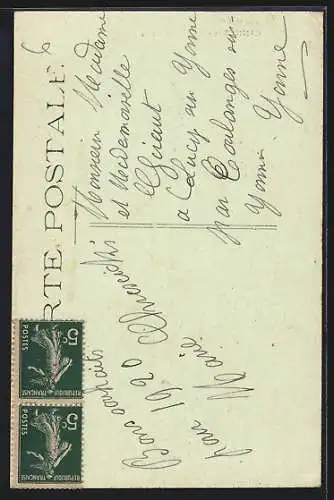 CARTE POSTALE
Monsieur Madame
et Mademoiselle
Girault
a Lucy sur Yonne
par Coulanges sur
Yonne Yonne
Bons souhaits
1920
par Marie
5c
POSTES
REPUBLIQUE FRANÇAISE
5c
POSTES
REPUBLIQUE FRANÇAISE